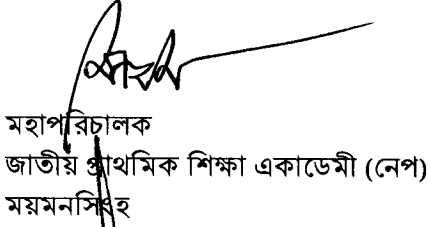 মহাপরিচালক
জাতীয় প্রাথমিক শিক্ষা একাডেমী (নেপ)
ময়মনসিংহ